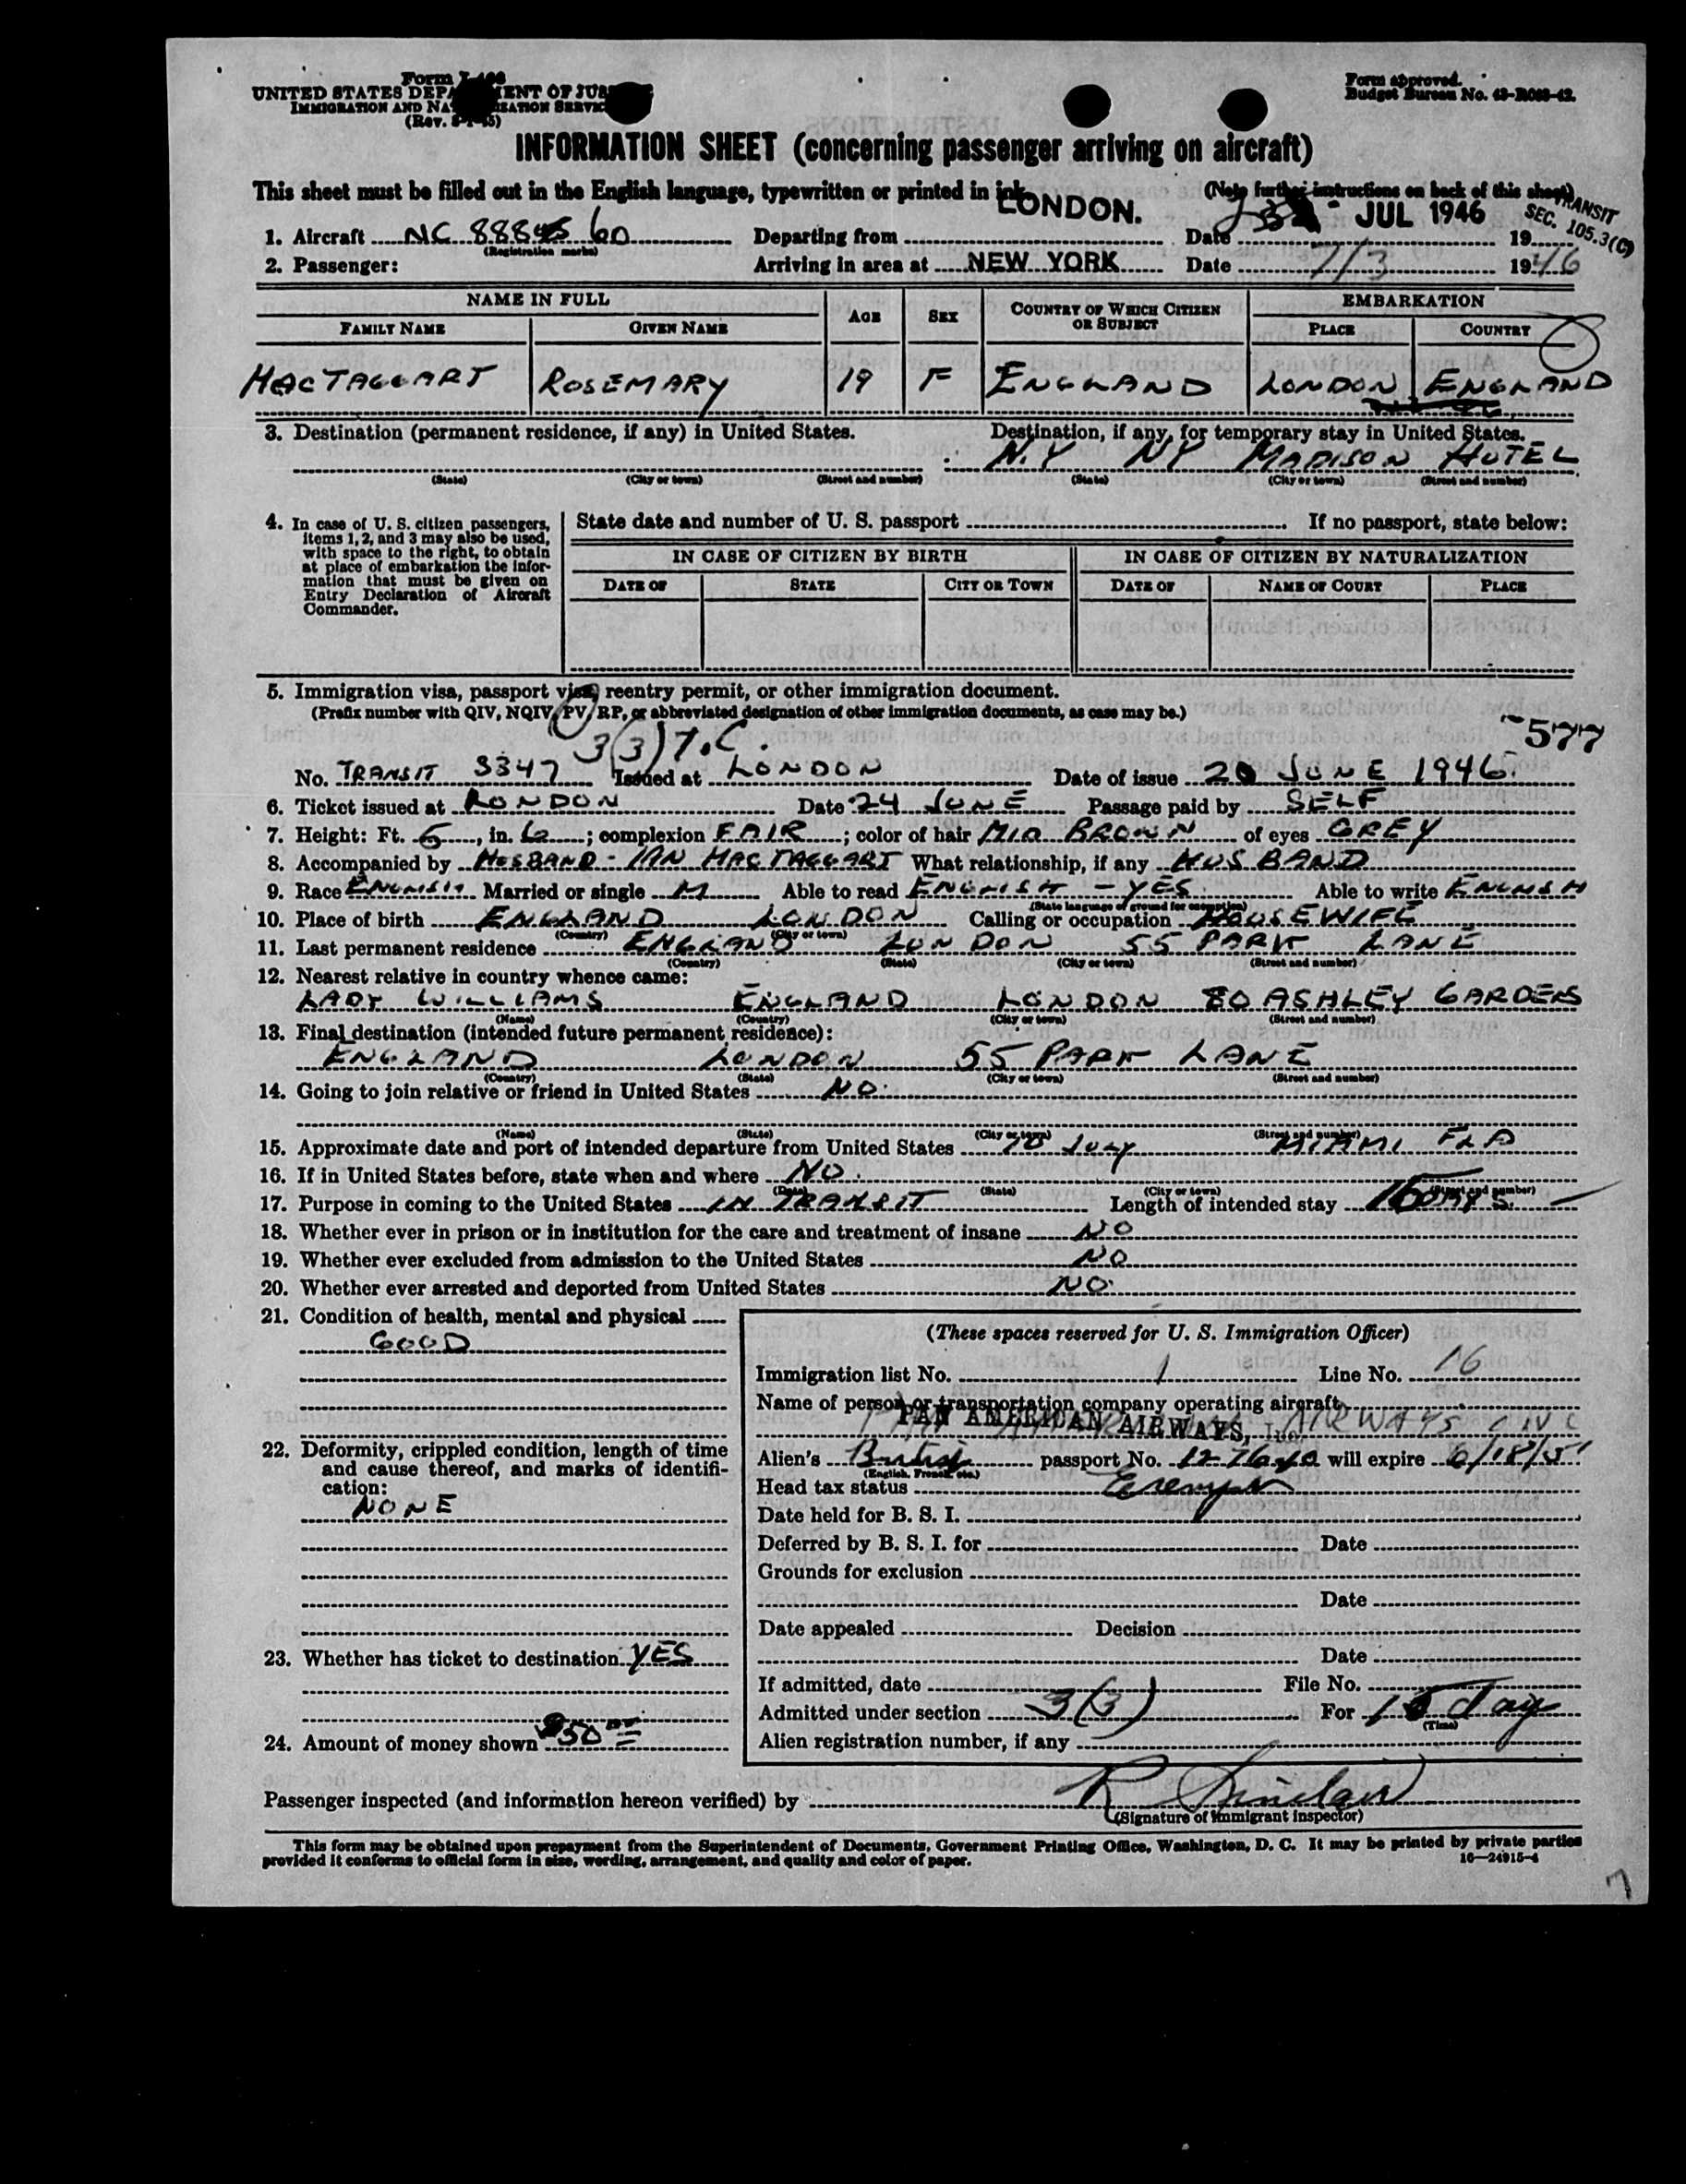 Form I-466
UNITED STATES DEPARTMENT OF JUSTICE
IMMIGRATION AND NATURALIZATION SERVICE
(Rev. 8-1-45)
Form approved.
Budget Bureau No. 43-R083-42.
INFORMATION SHEET (concerning passenger arriving on aircraft)
This sheet must be filled out in the English language, typewritten or printed in ink. (Note further instructions on back of this sheet)
TRANSIT
SEC. 105.3(C)
1. Aircraft NC 888 60 Departing from LONDON. Date JUL 1946 19
(Registration marks)
2. Passenger: Arriving in area at NEW YORK Date 7/3 1946
NAME IN FULL AGE SEX COUNTRY OF WHICH CITIZEN OR SUBJECT EMBARKATION
FAMILY NAME GIVEN NAME PLACE COUNTRY
MACTAGGART ROSEMARY 19 F ENGLAND LONDON ENGLAND
3. Destination (permanent residence, if any) in United States. Destination, if any, for temporary stay in United States.
N.Y NY MADISON HOTEL
(State) (City or town) (Street and number) (State) (City or town) (Street and number)
4. In case of U. S. citizen passengers, items 1, 2, and 3 may also be used, with space to the right, to obtain at place of embarkation the information that must be given on Entry Declaration of Aircraft Commander.
State date and number of U. S. passport If no passport, state below:
IN CASE OF CITIZEN BY BIRTH IN CASE OF CITIZEN BY NATURALIZATION
DATE OF STATE CITY OR TOWN DATE OF NAME OF COURT PLACE
5. Immigration visa, passport visa, reentry permit, or other immigration document.
(Prefix number with QIV, NQIV, PV, RP, or abbreviated designation of other immigration documents, as case may be.)
577
3(3) T.C.
No. TRANSIT 3347 Issued at LONDON Date of issue 20 JUNE 1946.
6. Ticket issued at LONDON Date 24 JUNE Passage paid by SELF
7. Height: Ft. 5, in. 6; complexion FAIR; color of hair MID BROWN of eyes GREY
8. Accompanied by HUSBAND - IAN MACTAGGART What relationship, if any HUSBAND
9. Race ENGLISH Married or single M Able to read ENGLISH - YES Able to write ENGLISH
(State language or ground for exemption)
10. Place of birth ENGLAND LONDON Calling or occupation HOUSEWIFE
(Country) (City or town)
11. Last permanent residence ENGLAND LONDON 55 PARK LANE
(Country) (State) (City or town) (Street and number)
12. Nearest relative in country whence came:
LADY WILLIAMS ENGLAND LONDON 80 ASHLEY GARDENS
(Name) (Country) (City or town) (Street and number)
13. Final destination (intended future permanent residence):
ENGLAND LONDON 55 PARK LANE
(Country) (State) (City or town) (Street and number)
14. Going to join relative or friend in United States NO.
(Name) (State) (City or town) (Street and number)
15. Approximate date and port of intended departure from United States 10 JULY MIAMI FLA
16. If in United States before, state when and where NO.
(Date) (State) (City or town) (Street and number)
17. Purpose in coming to the United States IN TRANSIT Length of intended stay 15 DAYS.
18. Whether ever in prison or in institution for the care and treatment of insane NO
19. Whether ever excluded from admission to the United States NO
20. Whether ever arrested and deported from United States NO.
21. Condition of health, mental and physical
GOOD
22. Deformity, crippled condition, length of time and cause thereof, and marks of identification:
NONE
23. Whether has ticket to destination YES
24. Amount of money shown $50 00
(These spaces reserved for U. S. Immigration Officer)
Immigration list No. 1 Line No. 16
Name of person or transportation company operating aircraft
PAN AMERICAN AIRWAYS, Inc.
Alien's British passport No. will expire 6/18/51
(English, French, etc.)
Head tax status Exempt
Date held for B. S. I.
Deferred by B. S. I. for Date
Grounds for exclusion
Date
Date appealed Decision
Date
If admitted, date File No.
Admitted under section 3(3) For 15 day
(Time)
Alien registration number, if any
Passenger inspected (and information hereon verified) by R Sinclair
(Signature of immigrant inspector)
This form may be obtained upon prepayment from the Superintendent of Documents, Government Printing Office, Washington, D. C. It may be printed by private parties
provided it conforms to official form in size, wording, arrangement, and quality and color of paper. 16—24915-4
7